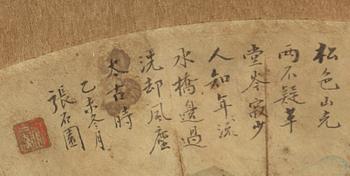 松色山光
兩不疑草
堂岑寂少
人知年流
水橋邊過
洗却風塵
太古時
乙未冬月
張石園